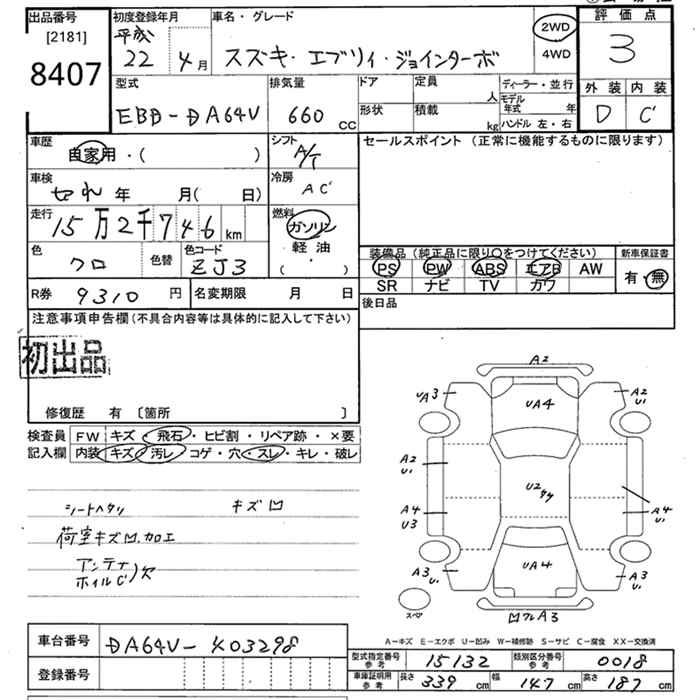 出品番号 [2181] 8407
初度登録年月 平成 22 4月
車名・グレード スズキ・エブリィ・ジョインターボ
2WD
4WD
評価点 3
外装 内装
D C'
型式 EBD-DA64V
排気量 660 cc
ドア 定員 人
形状 積載 kg
ディーラー・並行
モデル年式 年
ハンドル 左・右
車歴 自家用・( )
シフト A/T
セールスポイント (正常に機能するものに限ります)
車検 切れ 年 月( 日)
冷房 AC
走行 15万2千746km
燃料 ガソリン
軽油
( ・ )
色 クロ 色替 色コード ZJ3
装備品(純正品に限り○をつけてください)
新車保証書
PS PW ABS エアB AW
SR ナビ TV カワ
有・無
R券 9310 円 名変期限 月 日
後日品
注意事項申告欄(不具合内容等は具体的に記入して下さい)
初出品
修復歴 有 〔箇所 〕
検査員 FW キズ・飛石・ヒビ割・リペア跡・×要
記入欄 内装 キズ・汚レ・コゲ・穴・スレ・キレ・破レ
シートヘタリ キズ凹
荷室キズ凹.加工
アンテナ
ホイルC 欠
A2
UA3 UA4 A2 U1
A2 U1
U2
A4 U3
A4 U1
A3 U1 UA4 A3 U1
スペア
凹ワレA3
A-キズ E-エクボ U-凹み W-補修跡 S-サビ C-腐食 XX-交換済
車台番号 DA64V-403298
登録番号
型式指定番号 参考 15132 類別区分番号 参考 0018
車庫証明用 参考 長さ 339 cm 幅 147 cm 高さ 187 cm